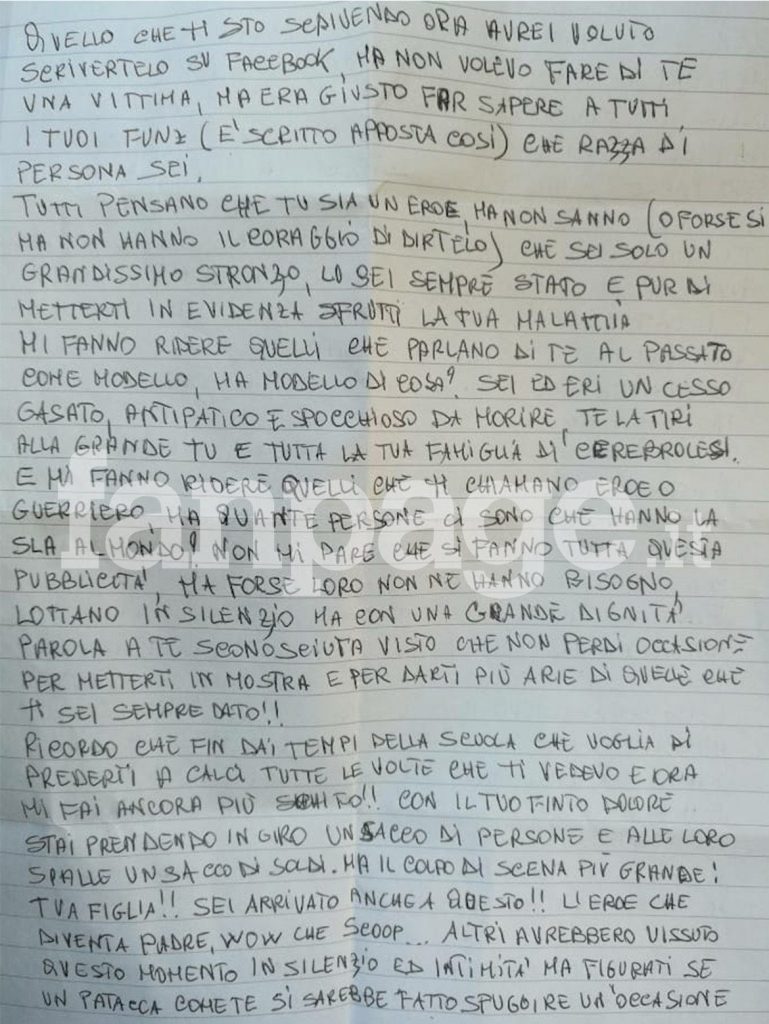 QUELLO CHE TI STO SCRIVENDO ORA AVREI VOLUTO
SCRIVERTELO SU FACEBOOK, MA NON VOLEVO FARE DI TE
UNA VITTIMA, MA ERA GIUSTO FAR SAPERE A TUTTI
I TUOI FUNZ (E' SCRITTO APPOSTA COSÌ) CHE RAZZA DI
PERSONA SEI.
TUTTI PENSANO CHE TU SIA UN EROE, MA NON SANNO (O FORSE SI
MA NON HANNO IL CORAGGIO DI DIRTELO) CHE SEI SOLO UN
GRANDISSIMO STRONZO, LO SEI SEMPRE STATO E PUR DI
METTERTI IN EVIDENZA SFRUTTI LA TUA MALATTIA
MI FANNO RIDERE QUELLI CHE PARLANO DI TE AL PASSATO
COME MODELLO, MA MODELLO DI COSA? SEI ED ERI UN CESSO
GASATO, ANTIPATICO E SPOCCHIOSO DA MORIRE, TE LA TIRI
ALLA GRANDE TU E TUTTA LA TUA FAMIGLIA DI CEREBROLESI.
E MI FANNO RIDERE QUELLI CHE TI CHIAMANO EROE O
GUERRIERO, MA QUANTE PERSONE CI SONO CHE HANNO LA
SLA AL MONDO? NON MI PARE CHE SI FANNO TUTTA QUESTA
PUBBLICITA', MA FORSE LORO NON NE HANNO BISOGNO,
LOTTANO IN SILENZIO MA CON UNA GRANDE DIGNITA'
PAROLA A TE SCONOSCIUTA VISTO CHE NON PERDI OCCASIONE
PER METTERTI IN MOSTRA E PER DARTI PIÙ ARIE DI QUELLE CHE
TI SEI SEMPRE DATO!!
RICORDO CHE FIN DAI TEMPI DELLA SCUOLA CHE VOGLIA DI
PREDERTI A CALCI TUTTE LE VOLTE CHE TI VEDEVO E ORA
MI FAI ANCORA PIÙ SCHIFO!! CON IL TUO FINTO DOLORE
STAI PRENDENDO IN GIRO UN SACCO DI PERSONE E ALLE LORO
SPALLE UN SACCO DI SOLDI. MA IL COLPO DI SCENA PIÙ GRANDE!
TUA FIGLIA!! SEI ARRIVATO ANCHE A QUESTO!! L'EROE CHE
DIVENTA PADRE, WOW CHE SCOOP... ALTRI AVREBBERO VISSUTO
QUESTO MOMENTO IN SILENZIO ED INTIMITA' MA FIGURATI SE
UN PATACCA COME TE SI SAREBBE FATTO SFUGGIRE UN'OCCASIONE
fanpage.it